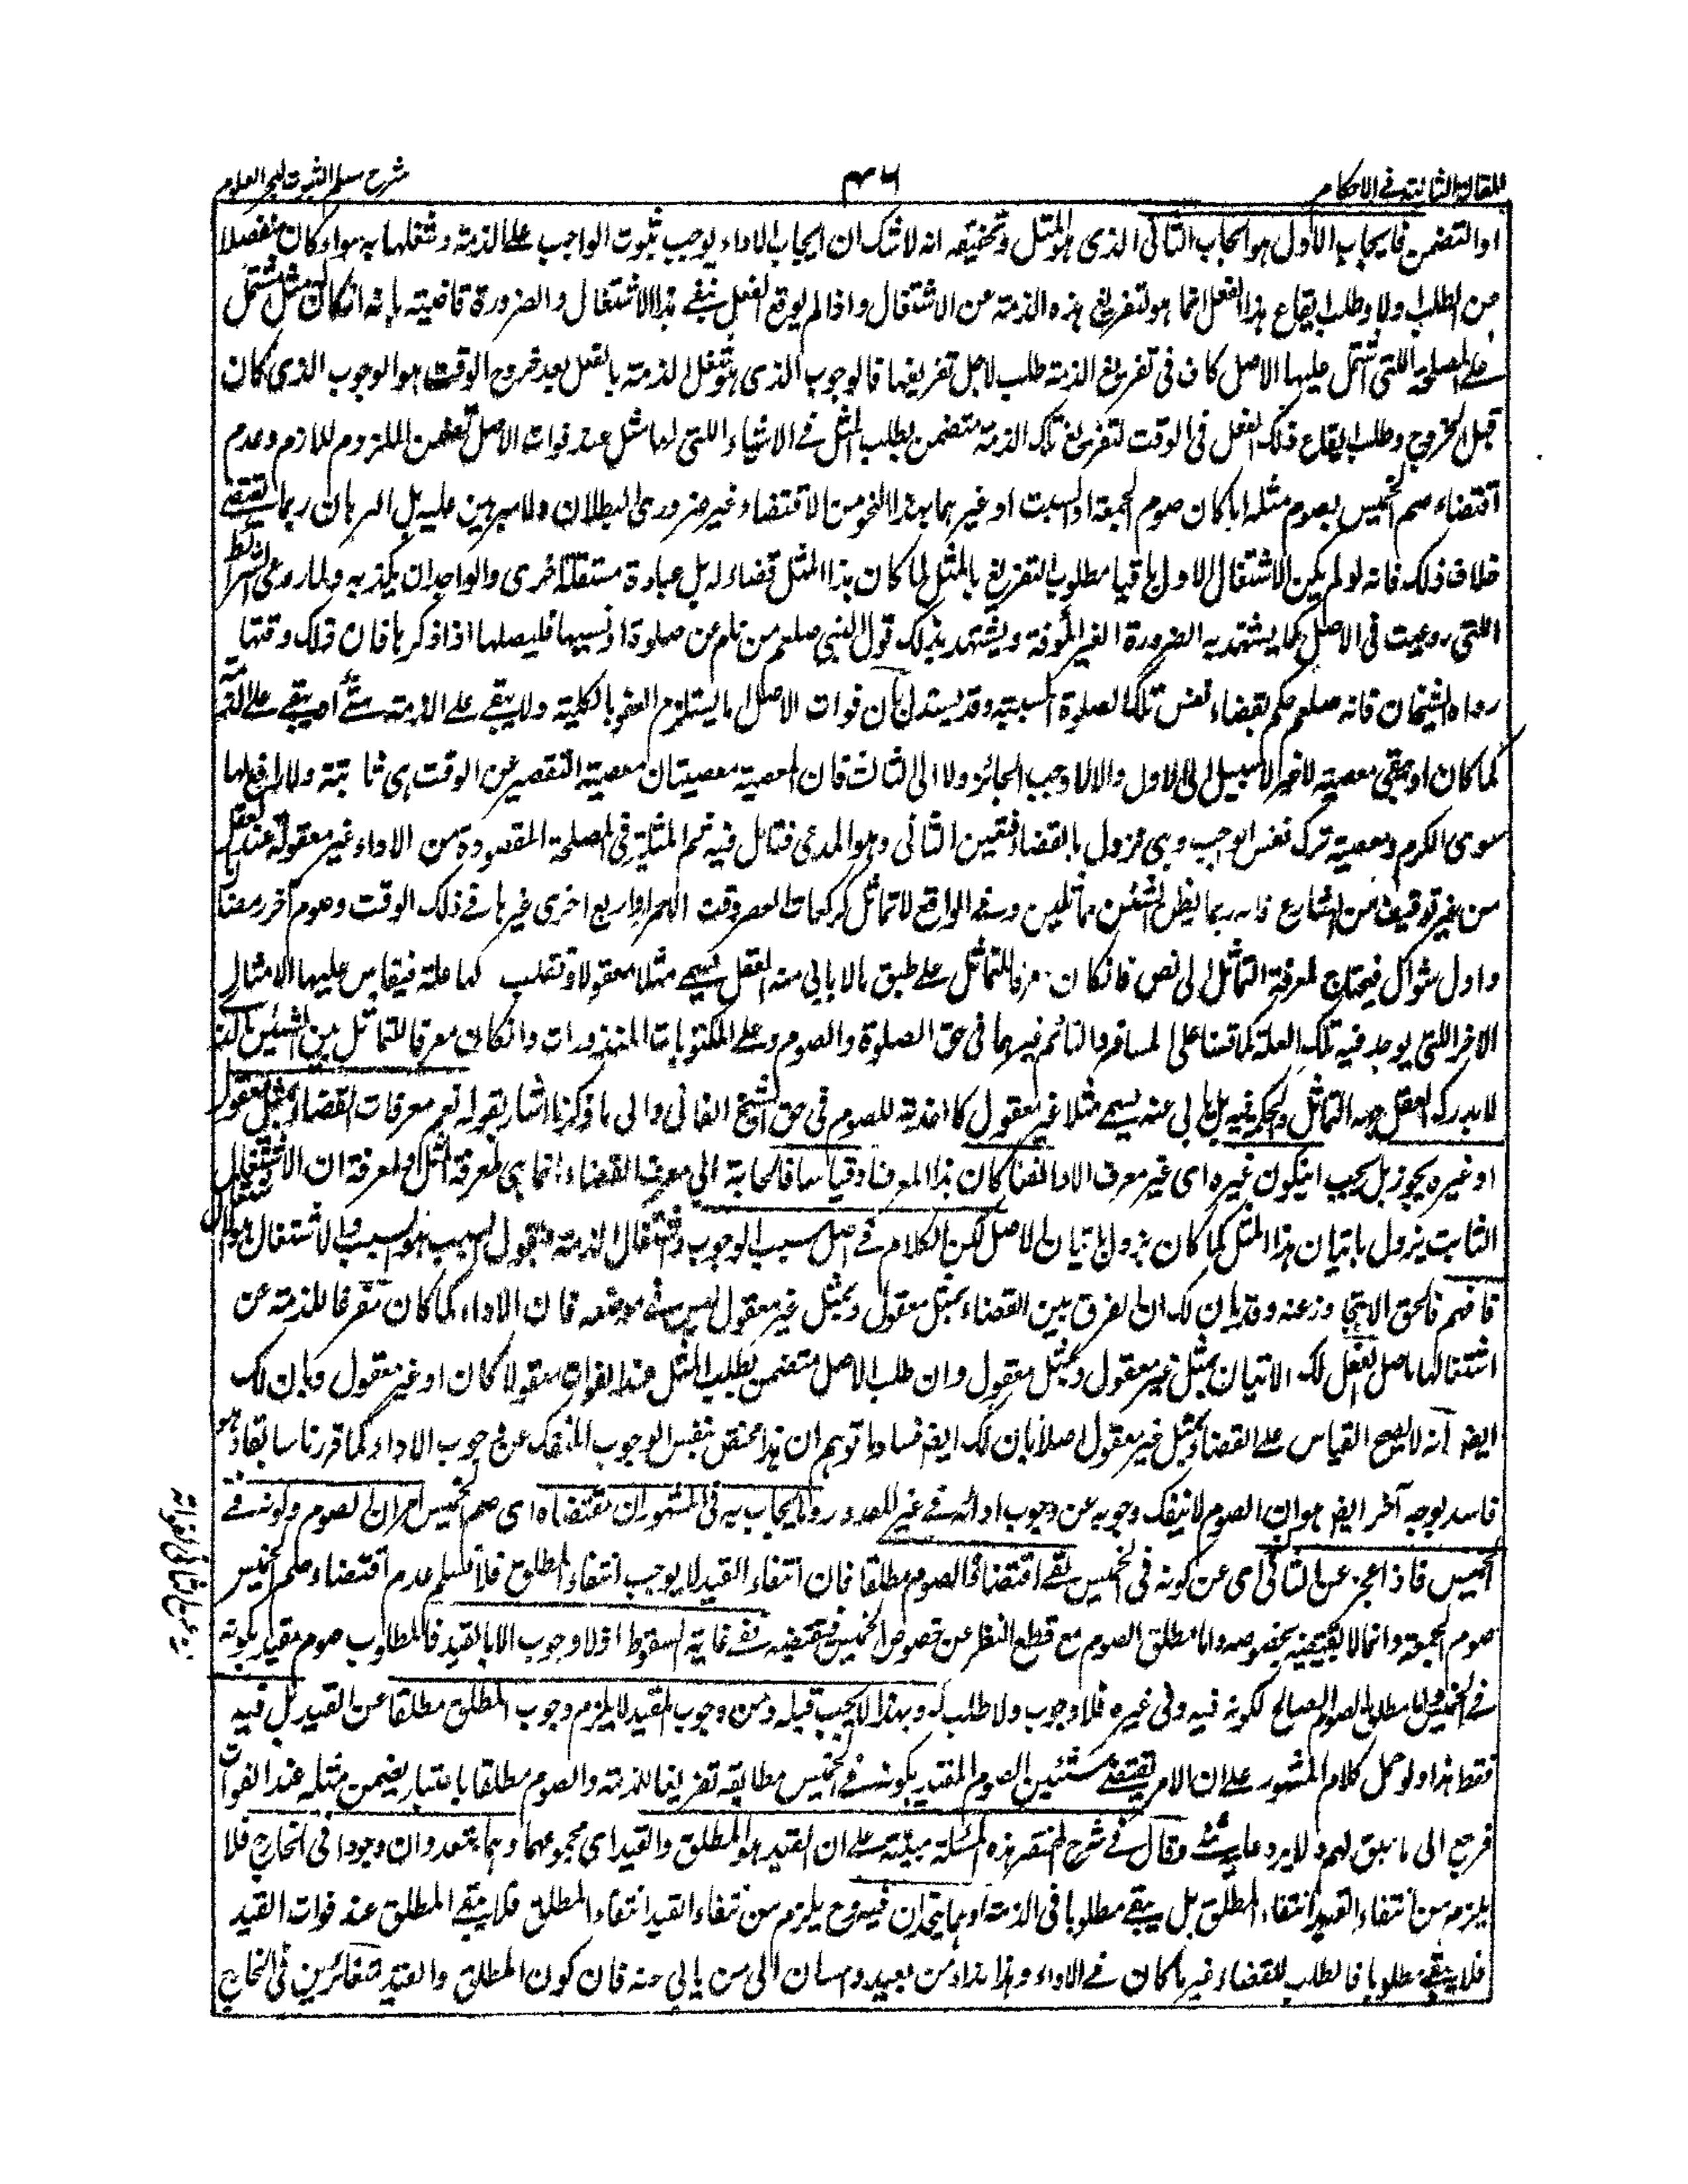 المقالة الثانية في الاحكام
٤٦
شرح مسلم الثبوت لبحر العلوم
او التضمن فايجاب الاول هو ايجاب الثاني الذي هو المثل وتحقيقه انه لا شك ان ايجاب الاداء يوجب ثبوت الواجب على الذمة وشغلها به سواء كان منفصلا
من الطلب او لا وطلب ايقاع هذا الفعل انما هو لتفريغ هذه الذمة عن الاشتغال واذا لم يوقع الفعل بقي هذا الاشتغال والضرورة قاضية بانه ان كان مثل مشتمل
على المصلحة التي اشتمل عليها الاصل كاف في تفريغ الذمة طلب لاجل تفريغها فالوجوب الذي هو شغل الذمة بالفعل بعد خروج الوقت هو الوجوب الذي كان
قبل الخروج وطلب ايقاع ذلك الفعل في الوقت لتفريغ تلك الذمة متضمن بطلب المثل في الاشياء اللتي لها مثل عند فوات الاصل تضمن الملزوم للازم وعدم
اقتضاء صم الخميس بصوم مثله اياكان صوم الجمعة او السبت او غيرهما بهذا النحو من الاقتضاء غير ضروري البطلان ولا مبرهن عليه بل البرهان ربما يقتضي
خلاف ذلك فانه لو لم يكن الاشتغال الاول باقيا مطلوب التفريغ بالمثل لما كان هذا المثل قضاء له بل عبادة مستقلة اخرى والوجدان يكذبه ولما روعي الشرائط
اللتي روعيت في الاصل كما يشهد به الضرورة الغير المؤفة ويشهد بذلك قول النبي صلعم من نام عن صلوة او نسيها فليصلها اذا ذكرها فان ذلك وقتها
رواه الشيخان فانه صلعم حكم بقضاء نفس تلك الصلوة المنسية وقد يستدل بان فوات الاصل اما يستلزم العفو بالكلية ولا يبقى على الذمة شيء او يبقى على الذمة
كما كان او يبقى معصية لا غير لا سبيل الى الاول والا لا وجب الجائز ولا الى الثالث فان المعصية معصيتان معصية التقصير عن الوقت هي ثابتة ولا رافع لها
سوى الكرم ومعصية ترك نفس الواجب وهي تزول بالقضاء فتعين الثاني وهو المدعى فتأمل فيه ثم المثلية في المصلحة المقصودة من الاداء غير معقولة عند العقل
من غير توقيف من الشارع فانه ربما يظن الشيئين متماثلين وفي الواقع لا تماثل كركعات العصر وقت الاحمرار واربع اخرى غيرها في ذلك الوقت وصوم آخر رمضان
واول شوال فيحتاج لمعرفة التماثل الى نص فان كان معرفا للتماثل على طبق ما لا يابى منه العقل يسمى مثلا معقولا وتطلب لها علة فيقاس عليها الامثال
الاخر اللتي يوجد فيه تلك العلة كما قسنا على المسافر والنائم غيرهما في حق الصلوة والصوم وعلى المكتوبات المنذورات وان كان معرفا للتماثل بين الشيئين
لا يدرك العقل جهة التماثل والحكم فيه بل يابى عنه يسمى مثلا غير معقول كالفدية للصوم في حق الشيخ الفاني والى ما ذكرنا اشار بقوله نعم معرفات القضاء بمثل معقول
او غيره يجوز بل يجب ان يكون غيره اى غير معرف الاداء نصا كان هذا المعرف او قياسا فالحاجة الى معرف القضاء انما هي لمعرفة المثل او لمعرفة ان الاشتغال
الثابت يزول باتيان هذا المثل كما كان يزول باتيان الاصل لكن الكلام في اصل سبب الوجوب واشتغال الذمة
فافهم فالحق لا يتجاوز عنه وقد بان لك ان الفرق بين القضاء بمثل معقول وبمثل غير معقول ليس في موضعه فان الاداء كما كان مفرغا للذمة عن
اشتغالها باصل الفعل كذلك الاتيان بمثل غير معقول وبمثل معقول وان طلب الاصل متضمن لطلب المثل عند الفوات معقولا كان او غير معقول وبان لك
ايضا انه لا يصح القياس على القضاء بمثل غير معقول اصلا بان لك ايضا فساد ما توهم ان هذا مختص بنفس الوجوب المنفك عن وجوب الاداء كما قررنا سابقا وهو
فاسد لوجه آخر ايضا هو ان الصوم لا ينفك وجوبه عن وجوب ادائه في غير المعذور وما يجاب به في المشهور ان مقتضاه اى صم الخميس امران الصوم وكونه في
الخميس فاذا عجز عن الثاني اى عن كونه في الخميس بقي اقتضائه الصوم مطلقا فان انتفاء القيد لا يوجب انتفاء المطلق فلا نسلم عدم اقتضاء صم الخميس
صوم الجمعة وانما لا يقتضيه بخصوصه واما مطلق الصوم مع قطع النظر عن خصوص الخميس فيقتضيه ففي غاية السقوط اذ لا وجوب الا بالقيد فالمطلوب صوم مقيد بكونه
في الخميس واما مطلق الصوم الصالح لكونه فيه وفي غيره فلا وجوب ولا طلب له وبهذا لا يجب قبله ومن وجوب المقيد لا يلزم وجوب المطلق مطلقا عن القيد بل فيه
فقط هذا ولو حمل كلام المشهور على ان الامر يقتضي شيئين الصوم المقيد بكونه في الخميس مطابقة تفريغا للذمة والصوم مطلقا باعتبار يضمن مثله عند الفوات
فرجع الى ما سبق لهم ولا يرد عليه شيء وقال في شرح المختصر هذه المسئلة مبنية على ان المقيد هو المطلق والقيد اى مجموعهما وهما يتعددان وجودا في الخارج فلا
يلزم من انتفاء القيد انتفاء المطلق بل يبقى مطلوبا في الذمة او هما يتحدان فيه وح يلزم من انتفاء القيد انتفاء المطلق فلا يبقى المطلق عند فوات القيد
فلا يبقى مطلوبا فالطلب للقضاء غير ما كان في الاداء وهذا نداء من بعيد واحسان الى من يابى منه فان كون المطلق والقيد متغائرين في الخارج